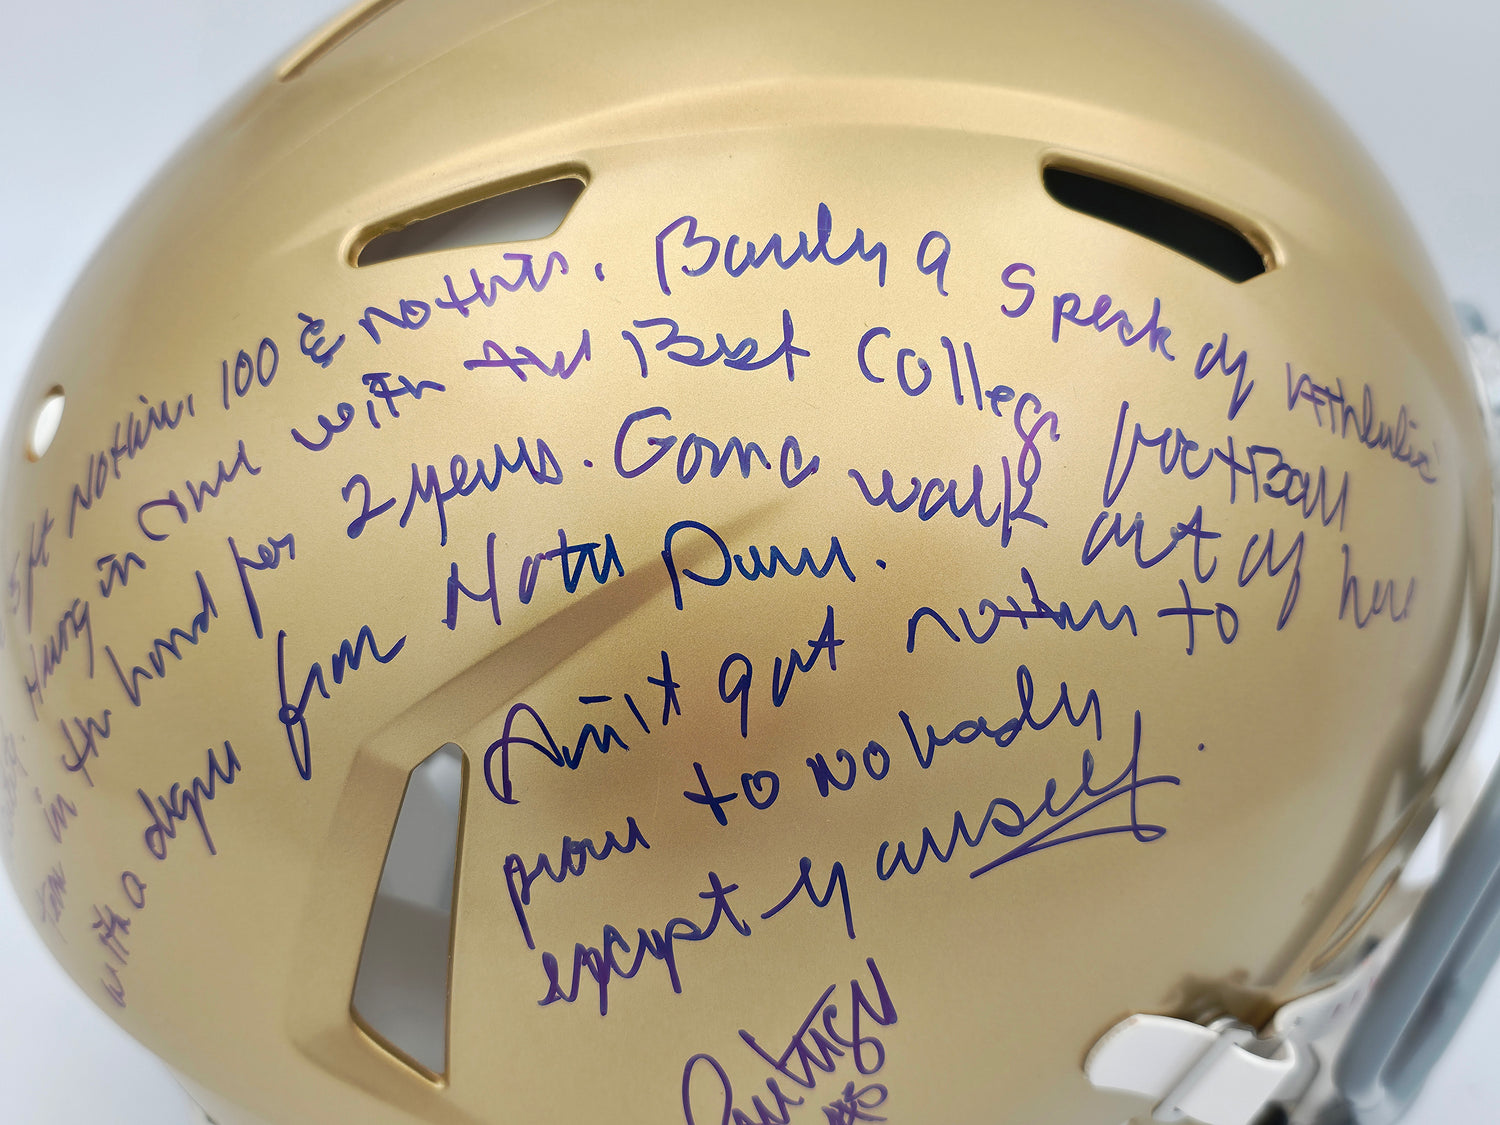 5 ft Nothin, 100 & nothin. Barely a speck of Athletic
Hung in there with the Best College football
team in the land for 2 years. Gonna walk out of here
with a degree from Notre Dame.
Ain't gut nothin to
prove to Nobody
except yourself.